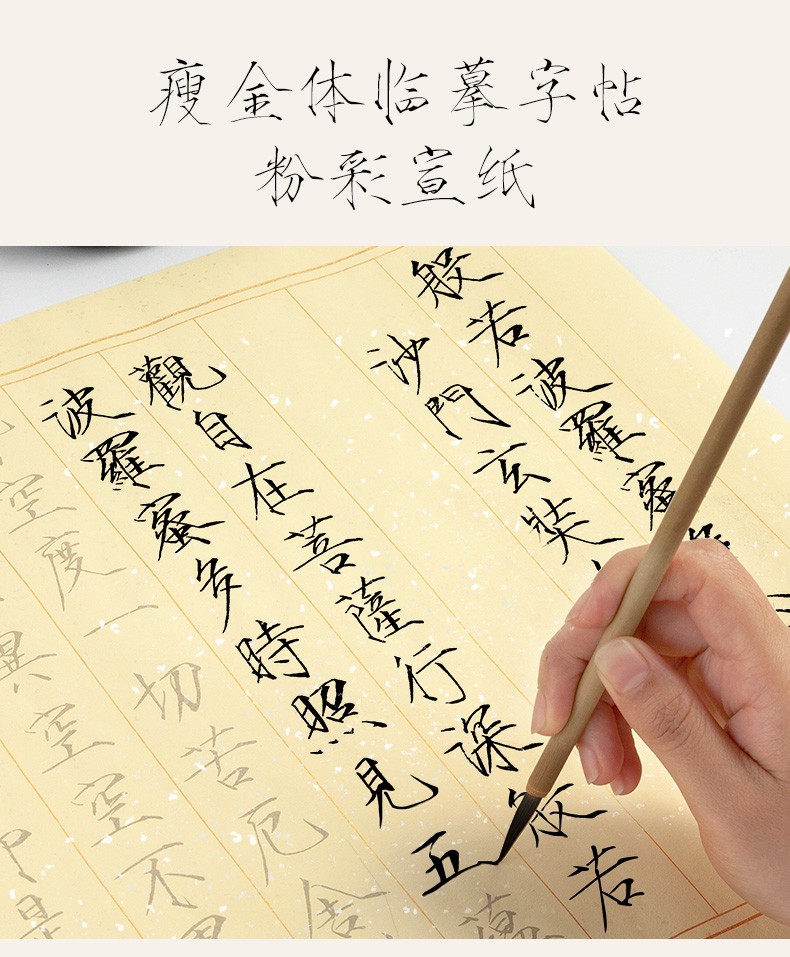 瘦金体临摹字帖
粉彩宣纸
般若波羅蜜
沙門玄奘
觀自在菩薩行深般若
波羅蜜多時照見五
空度一切苦厄舍
異空空不